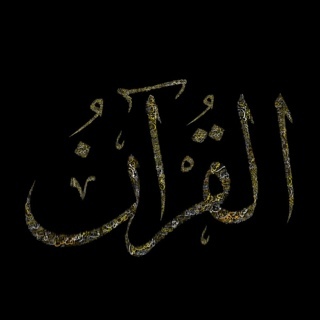 القُرآنُ